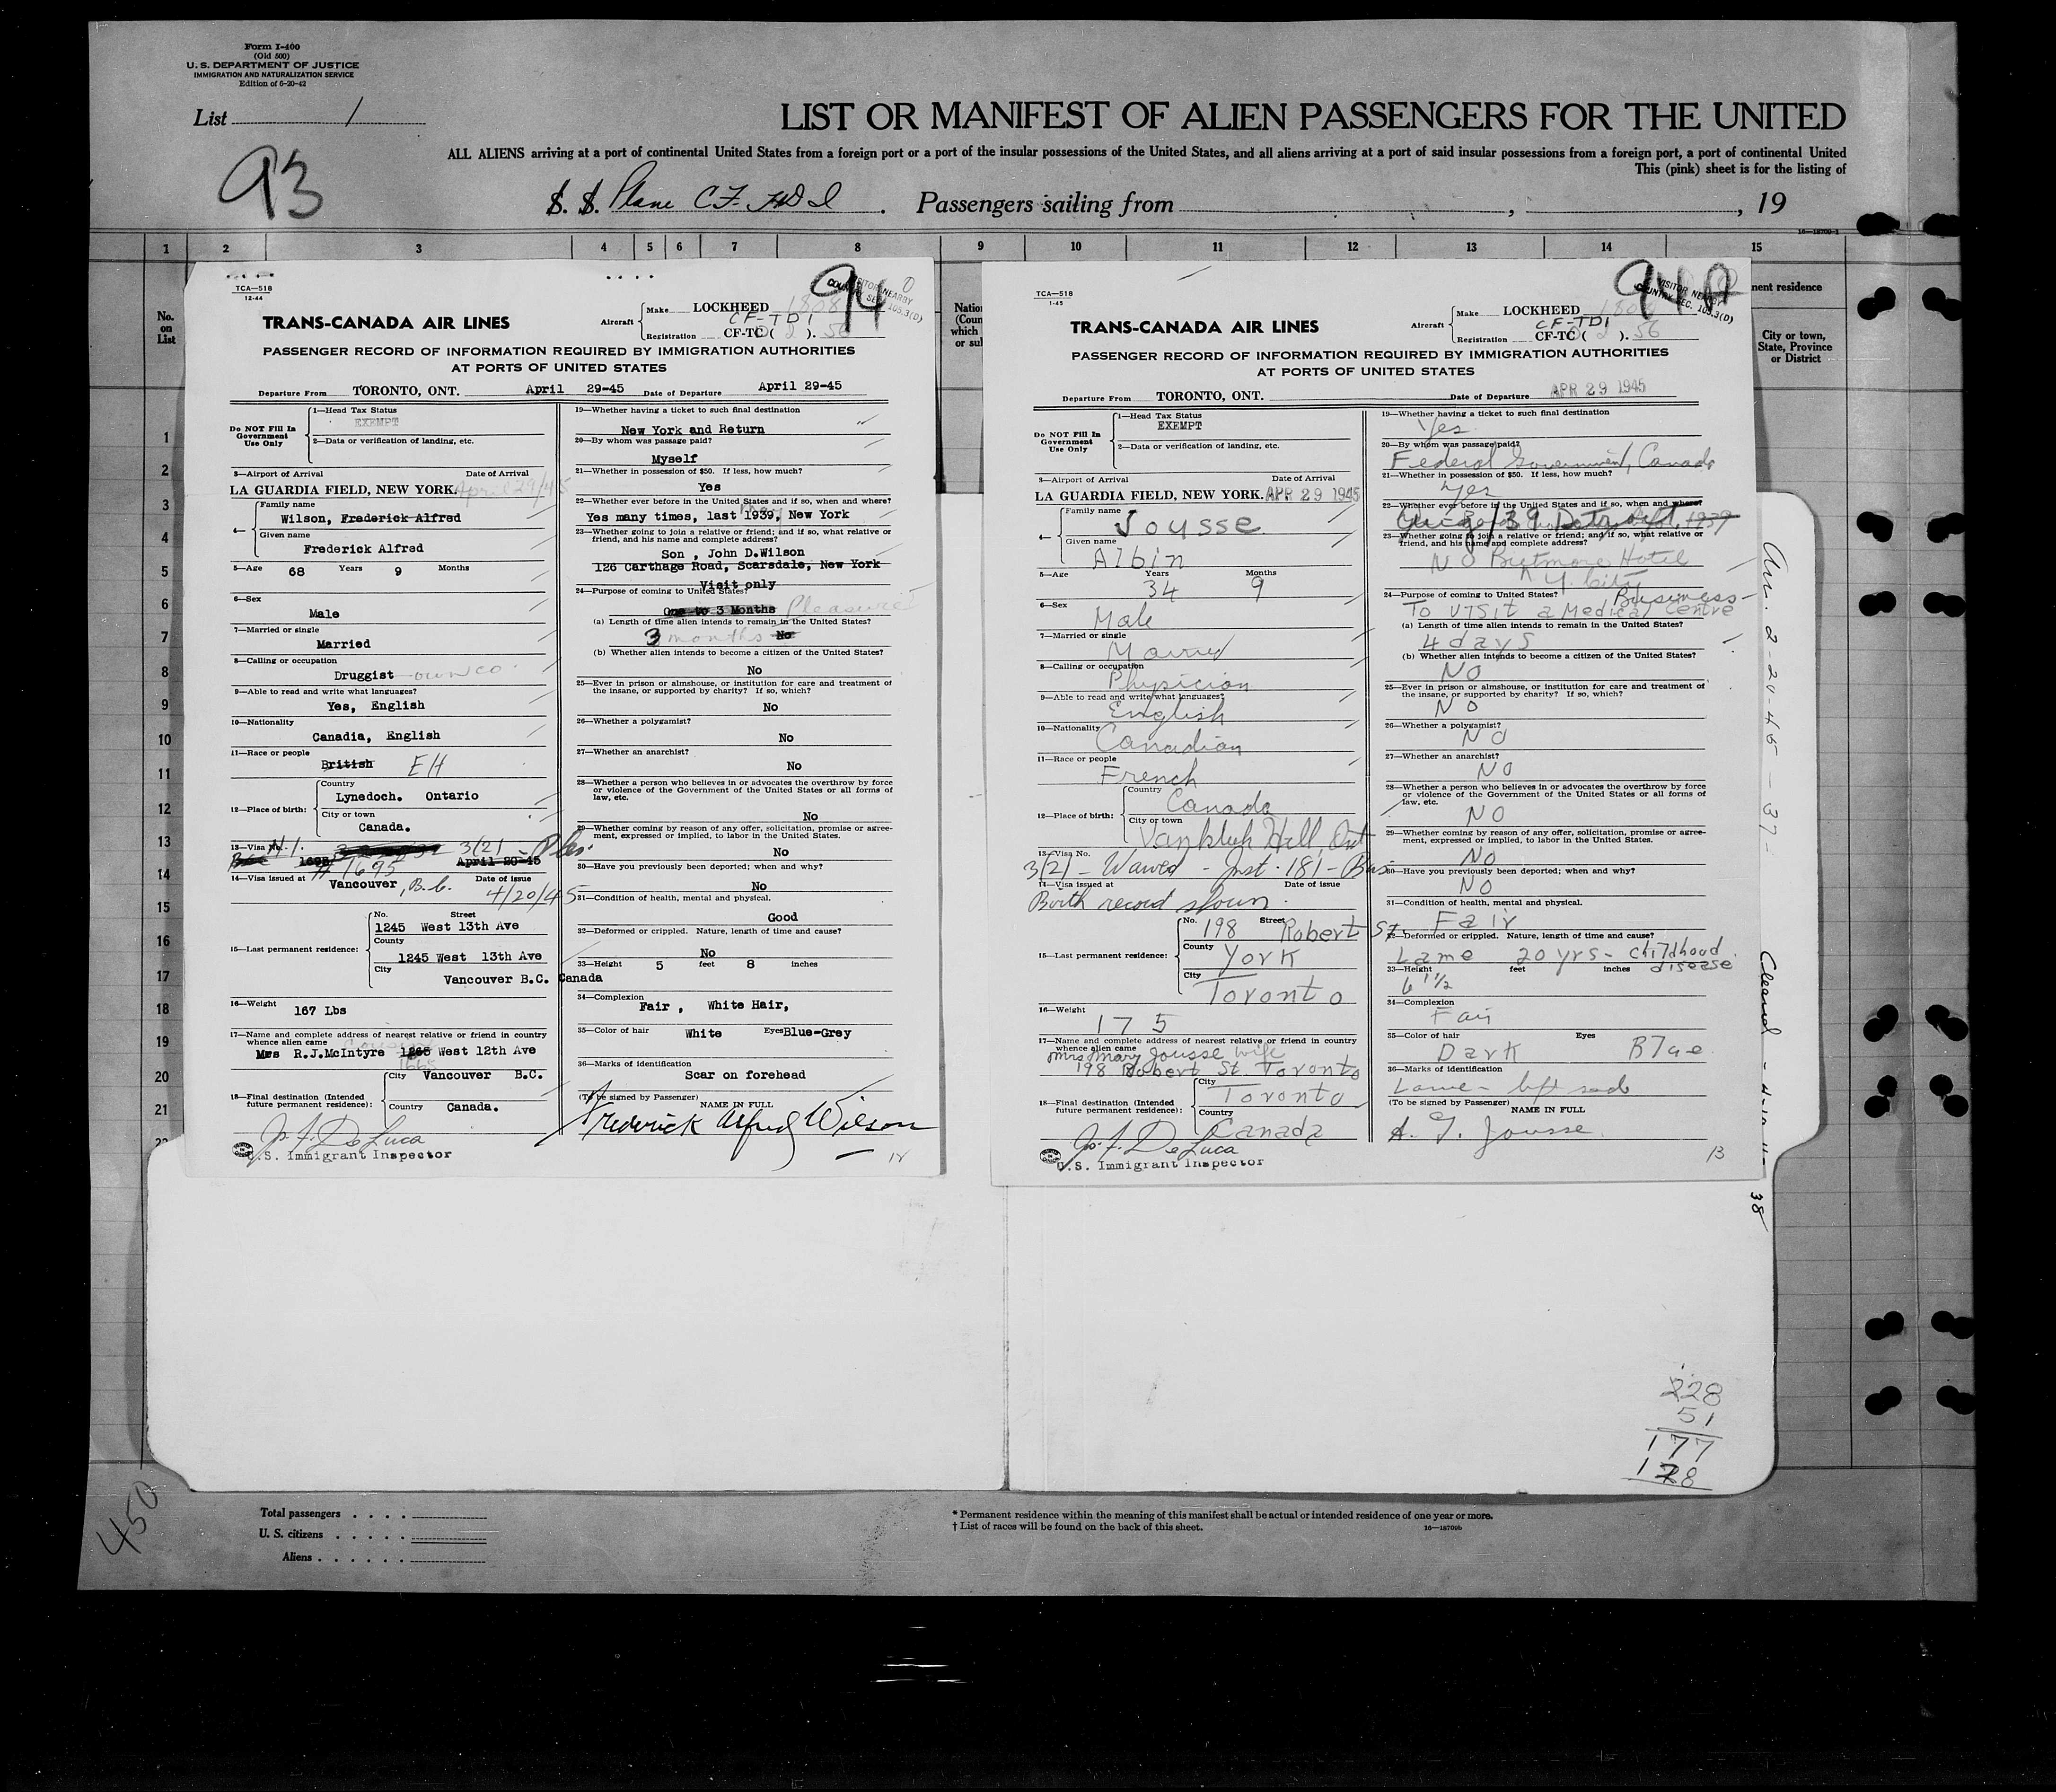 Form I-400
(Old 500)
U. S. DEPARTMENT OF JUSTICE
IMMIGRATION AND NATURALIZATION SERVICE
Edition of 6-20-42
List 1
93
LIST OR MANIFEST OF ALIEN PASSENGERS FOR THE UNITED
ALL ALIENS arriving at a port of continental United States from a foreign port or a port of the insular possessions of the United States, and all aliens arriving at a port of said insular possessions from a foreign port, a port of continental United
This (pink) sheet is for the listing of
S. S. Plane CF-TDI. Passengers sailing from , , 19
16—18709-1
1 2 3 4 5 6 7 8 9 10 11 12 13 14 15
No. on List
1
2
3
4
5
6
7
8
9
10
11
12
13
14
15
16
17
18
19
20
21
TCA—518
12-44
94
TRANS-CANADA AIR LINES
Aircraft Make LOCKHEED
CF-TDI
Registration CF-TC ( ).
PASSENGER RECORD OF INFORMATION REQUIRED BY IMMIGRATION AUTHORITIES
AT PORTS OF UNITED STATES
Departure From TORONTO, ONT. April 29-45 Date of Departure April 29-45
Do NOT Fill In Government Use Only
1—Head Tax Status
EXEMPT
2—Data or verification of landing, etc.
3—Airport of Arrival Date of Arrival
LA GUARDIA FIELD, NEW YORK. April 29/45
4— Family name
Wilson, Frederick Alfred
Given name
Frederick Alfred
5—Age 68 Years 9 Months
6—Sex
Male
7—Married or single
Married
8—Calling or occupation
Druggist
9—Able to read and write what languages?
Yes, English
10—Nationality
Canadia, English
11—Race or people
British EH
12—Place of birth: Country
Lynedoch. Ontario
City or town
Canada.
13—Visa No. 3(2)
1695 April 20-45
# 1695
14—Visa issued at Date of issue
Vancouver, B.C. 4/20/45
15—Last permanent residence: No. Street
1245 West 13th Ave
County
1245 West 13th Ave
City
Vancouver B.C. Canada
16—Weight
167 Lbs
17—Name and complete address of nearest relative or friend in country whence alien came
cousin
Mrs R.J.McIntyre 1265 West 12th Ave
1665
18—Final destination (Intended future permanent residence): City Vancouver B.C.
Country Canada.
J. F. DeLuca
U.S. Immigrant Inspector
19—Whether having a ticket to such final destination
New York and Return
20—By whom was passage paid?
Myself
21—Whether in possession of $50. If less, how much?
Yes
22—Whether ever before in the United States and if so, when and where?
Yes many times, last 1939, New York
23—Whether going to join a relative or friend; and if so, what relative or friend, and his name and complete address?
Son , John D.Wilson
126 Carthage Road, Scarsdale, New York
Visit only
24—Purpose of coming to United States?
One to 3 Months Pleasure
(a) Length of time alien intends to remain in the United States?
3 months No
(b) Whether alien intends to become a citizen of the United States?
No
25—Ever in prison or almshouse, or institution for care and treatment of the insane, or supported by charity? If so, which?
No
26—Whether a polygamist?
No
27—Whether an anarchist?
No
28—Whether a person who believes in or advocates the overthrow by force or violence of the Government of the United States or all forms of law, etc.
No
29—Whether coming by reason of any offer, solicitation, promise or agreement, expressed or implied, to labor in the United States.
No
30—Have you previously been deported; when and why?
No
31—Condition of health, mental and physical.
Good
32—Deformed or crippled. Nature, length of time and cause?
No
33—Height 5 feet 8 inches
34—Complexion
Fair , White Hair,
35—Color of hair White Eyes Blue-Grey
36—Marks of identification
Scar on forehead
(To be signed by Passenger) NAME IN FULL
Frederick Alfred Wilson
TCA—518
1-45
94A
VISITOR NEARBY
COUNTRY SEC. 105.3(D)
TRANS-CANADA AIR LINES
Aircraft Make LOCKHEED
CF-TDI
Registration CF-TC ( ). 56
PASSENGER RECORD OF INFORMATION REQUIRED BY IMMIGRATION AUTHORITIES
AT PORTS OF UNITED STATES
Departure From TORONTO, ONT. Date of Departure APR 29 1945
Do NOT Fill In Government Use Only
1—Head Tax Status
EXEMPT
2—Data or verification of landing, etc.
3—Airport of Arrival Date of Arrival
LA GUARDIA FIELD, NEW YORK. APR 29 1945
4— Family name
Jousse
Given name
Albin
5—Age Years Months
34 9
6—Sex
Male
7—Married or single
Married
8—Calling or occupation
Physician
9—Able to read and write what languages?
English
10—Nationality
Canadian
11—Race or people
French
12—Place of birth: Country
Canada
City or town
Vankleek Hill, Ont
13—Visa No.
3(2) - Waived - Inst. 181 - Bus
14—Visa issued at Date of issue
Birth record shown.
15—Last permanent residence: No. Street
198 Robert St.
County
York
City
Toronto
16—Weight
175
17—Name and complete address of nearest relative or friend in country whence alien came
Mrs Mary Jousse wife
198 Robert St. Toronto
18—Final destination (Intended future permanent residence): City
Toronto
Country
Canada
J. F. DeLuca
U.S. Immigrant Inspector
19—Whether having a ticket to such final destination
Yes
20—By whom was passage paid?
Federal Government, Canada
21—Whether in possession of $50. If less, how much?
Yes
22—Whether ever before in the United States and if so, when and where?
23—Whether going to join a relative or friend; and if so, what relative or friend, and his name and complete address?
No Biltmore Hotel
N.Y. City
24—Purpose of coming to United States? Business
To visit a Medical Centre
(a) Length of time alien intends to remain in the United States?
4 days
(b) Whether alien intends to become a citizen of the United States?
NO
25—Ever in prison or almshouse, or institution for care and treatment of the insane, or supported by charity? If so, which?
NO
26—Whether a polygamist?
NO
27—Whether an anarchist?
NO
28—Whether a person who believes in or advocates the overthrow by force or violence of the Government of the United States or all forms of law, etc.
NO
29—Whether coming by reason of any offer, solicitation, promise or agreement, expressed or implied, to labor in the United States.
NO
30—Have you previously been deported; when and why?
NO
31—Condition of health, mental and physical.
Fair
32—Deformed or crippled. Nature, length of time and cause?
Lame 20 yrs - childhood disease
33—Height feet inches
6 1½
34—Complexion
Fair
35—Color of hair Eyes
Dark Blue
36—Marks of identification
Lame - left side
(To be signed by Passenger) NAME IN FULL
A. T. Jousse
13
nent residence
City or town, State, Province or District
38
228
51
177
128
450
Total passengers
U. S. citizens
Aliens
* Permanent residence within the meaning of this manifest shall be actual or intended residence of one year or more.
† List of races will be found on the back of this sheet.
16—18709b